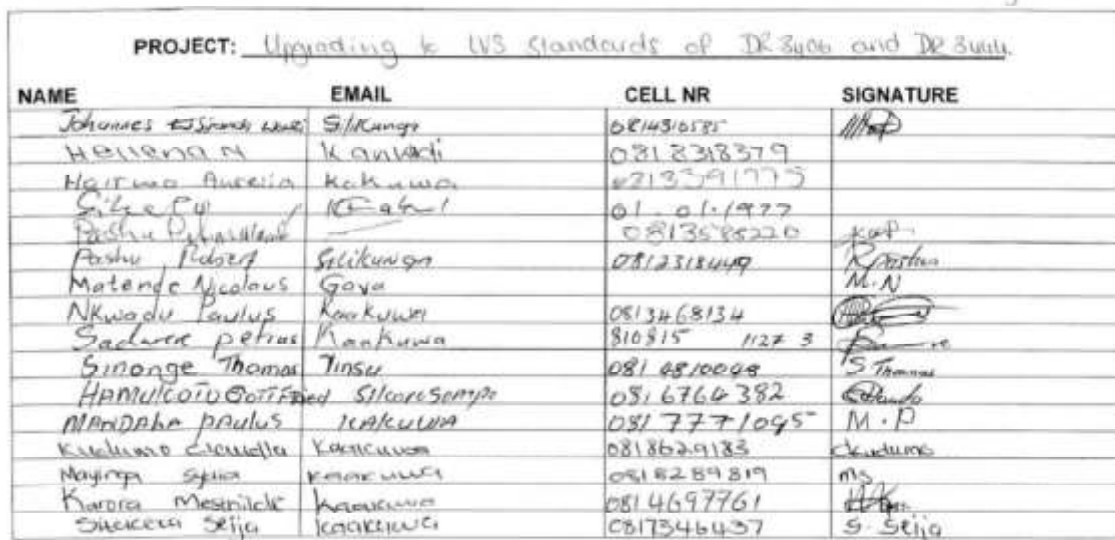 PROJECT: Upgrading to LVS standards of DR 3406 and DR 3444.
NAME EMAIL CELL NR SIGNATURE
Johannes Silikunga 0814310585
Hellena N Kankudi 0818318379
Hairwa Aurelia Kakuwa
01-01-1977
Pashu 0813585220
Pashu Robert Silikunga 0812318449 R Pashu
Matende Nicolaus Gova M.N
Nkwadu Paulus Kaakuwa 0813468134
Sadwere petrus Kaakuwa 810815 1127 3
Sinonge Thomas Tinsu 081 4810048 S Thomas
HAMUKOTO Gottfried Silcarosompo 081 6764 382
MANDAHA PAULUS KAKUWA 081 777 1095 M.P
Kudumo Claudia Kaakuwa 0818629183 ckudumo
Mayinga Sylvia Kaakuwa 0818289819 ms
Karora Mesthilde Kaakuwa 081 4697761
Seija Kaakuwa 0817346437 S. Seija